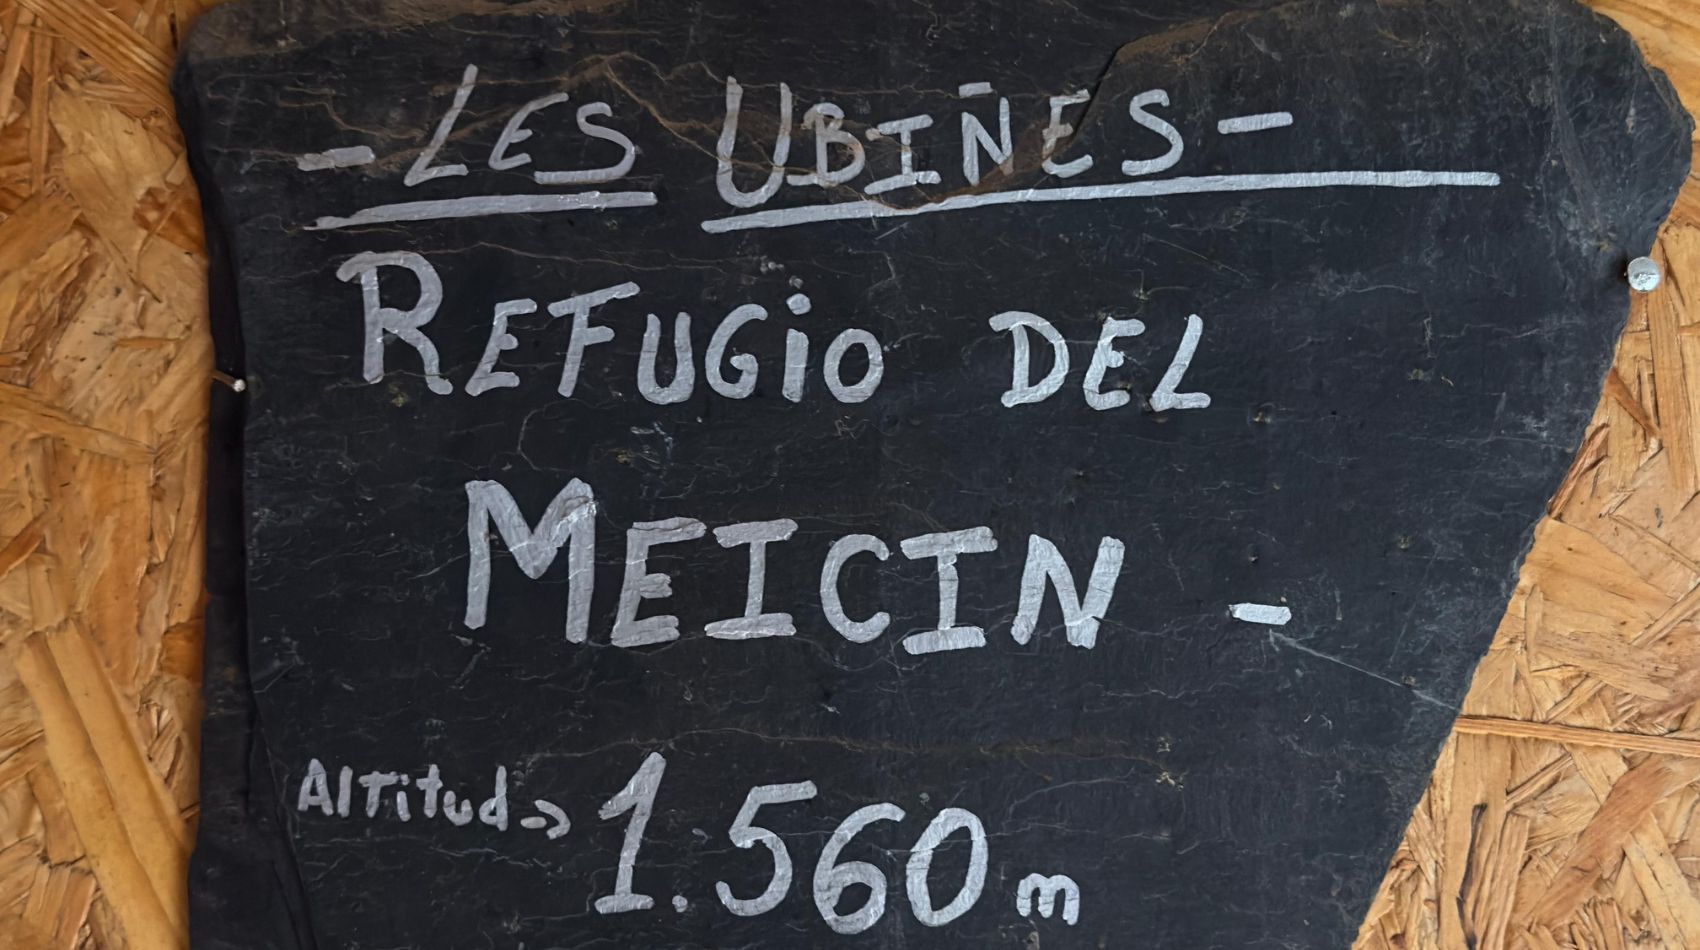 - LES UBIÑES -
REFUGiO DEL
MEICIN -
AlTitud → 1.560 m